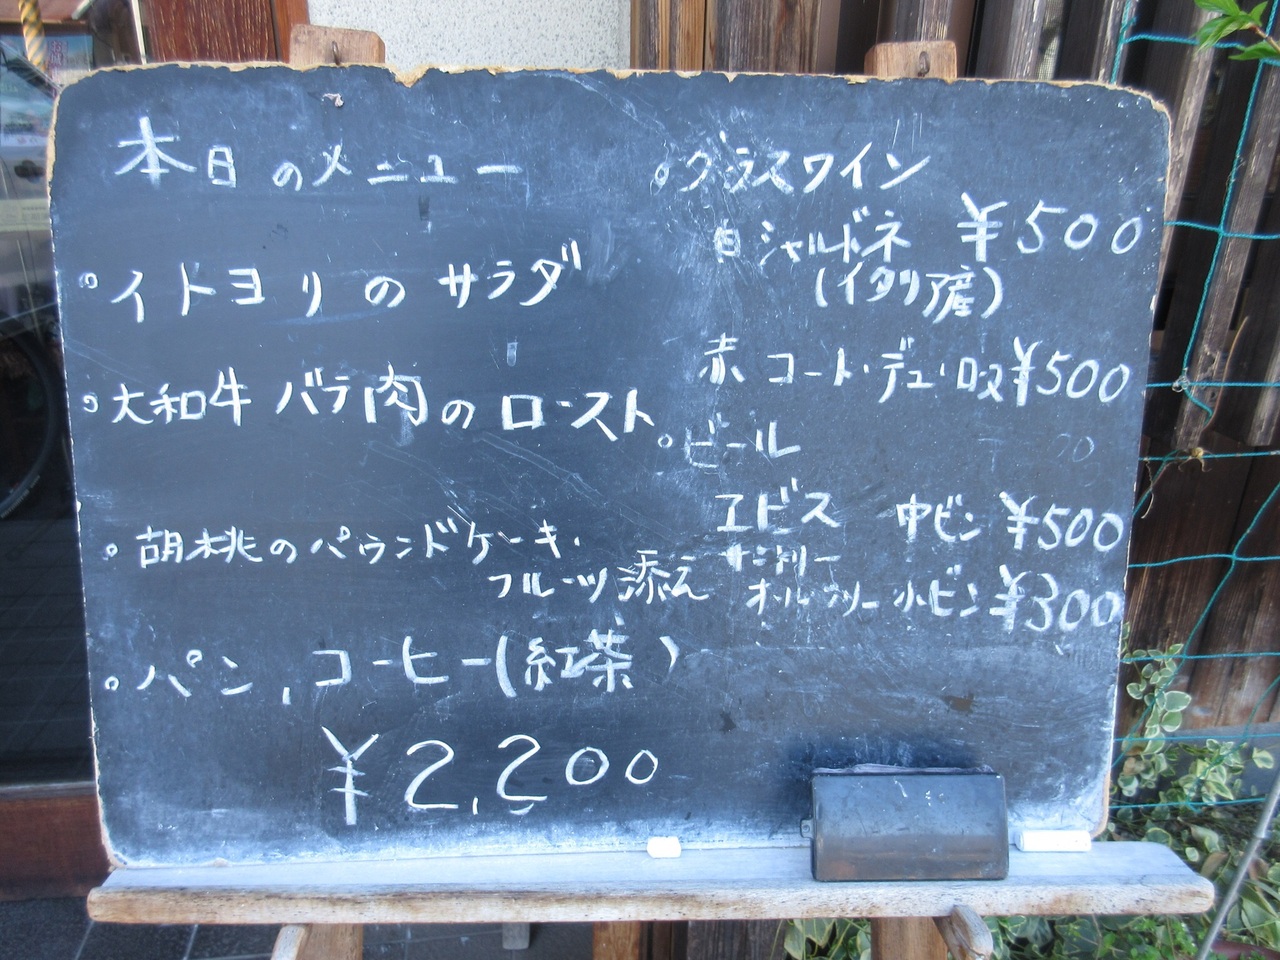 本日のメニュー
◦イトヨリのサラダ
◦大和牛バラ肉のロースト
◦胡桃のパウンドケーキ.
フルーツ添え
◦パン,コーヒー(紅茶)
¥2,200
◦グラスワイン
白シャルドネ ¥500
(イタリア産)
赤 コート・デュ・ローヌ ¥500
◦ビール
ヱビス 中ビン ¥500
サントリー
オールフリー 小ビン ¥300